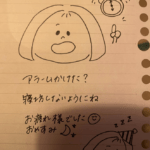 アラームかけた?
寝坊しないようにね
お疲れ様でした
おやすみ♪